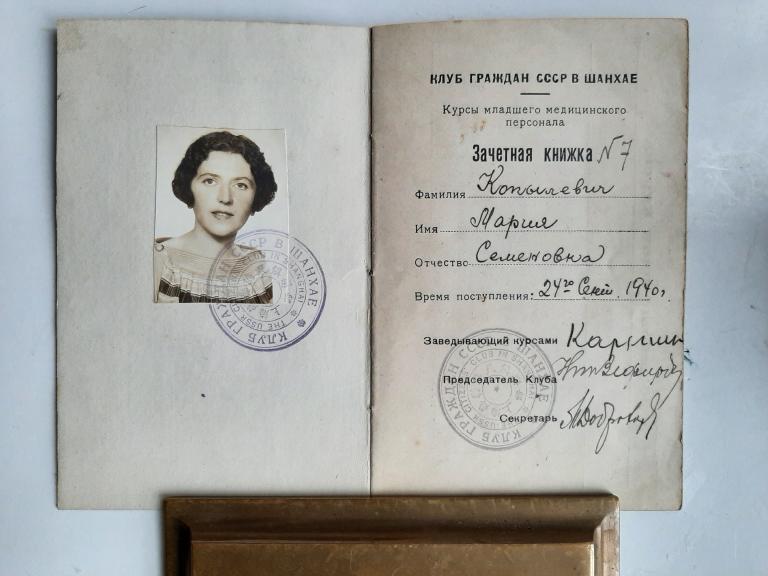 КЛУБ ГРАЖДАН СССР В ШАНХАЕ
Курсы младшего медицинского
персонала
Зачетная книжка № 7
Фамилия Копылевич
Имя Мария
Отчество Семеновна
Время поступления: 24го Сент. 1940 г.
Заведывающий курсами
Председатель Клуба
Секретарь
КЛУБ ГРАЖДАН СССР В ШАНХАЕ
THE USSR CITIZENS CLUB IN SHANGHAI
КЛУБ ГРАЖДАН СССР В ШАНХАЕ
THE USSR CITIZENS CLUB IN SHANGHAI